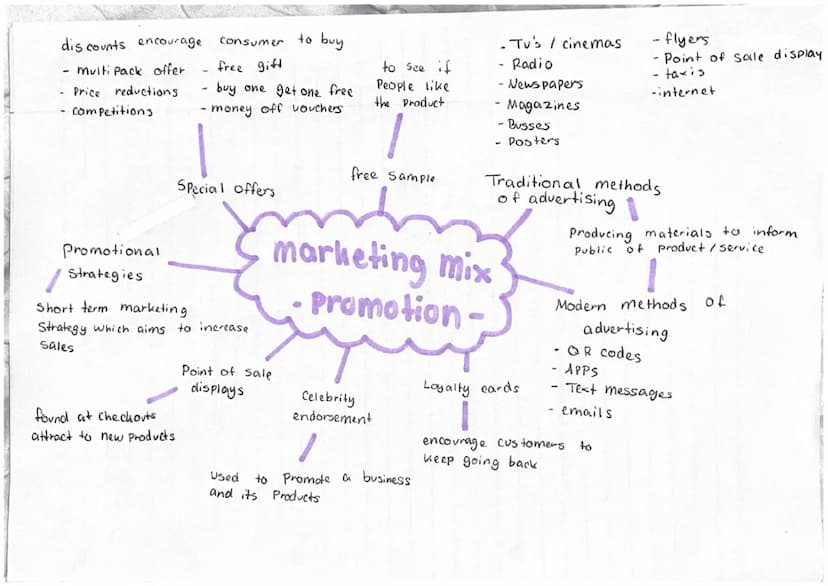 discounts encourage consumer to buy
- multipack offer
- Price reductions
- competitions
- free gift
- buy one get one free
- money off vouchers
Special offers
to see if
People like
the product
free sample
- TV's / cinemas
- Radio
- Newspapers
- Magazines
- Busses
- Posters
- flyers
- Point of sale display
- taxis
- internet
Traditional methods
of advertising
Producing materials to inform
public of product/service
Modern methods of
advertising
- QR codes
- APPs
- Text messages
- emails
marketing mix
- promotion -
Promotional
Strategies
Short term marketing
Strategy which aims to increase
sales
Point of sale
displays
found at checkouts
attract to new products
Celebrity
endorsement
Used to Promote a business
and its Products
Loyalty cards
encourage customers to
keep going back